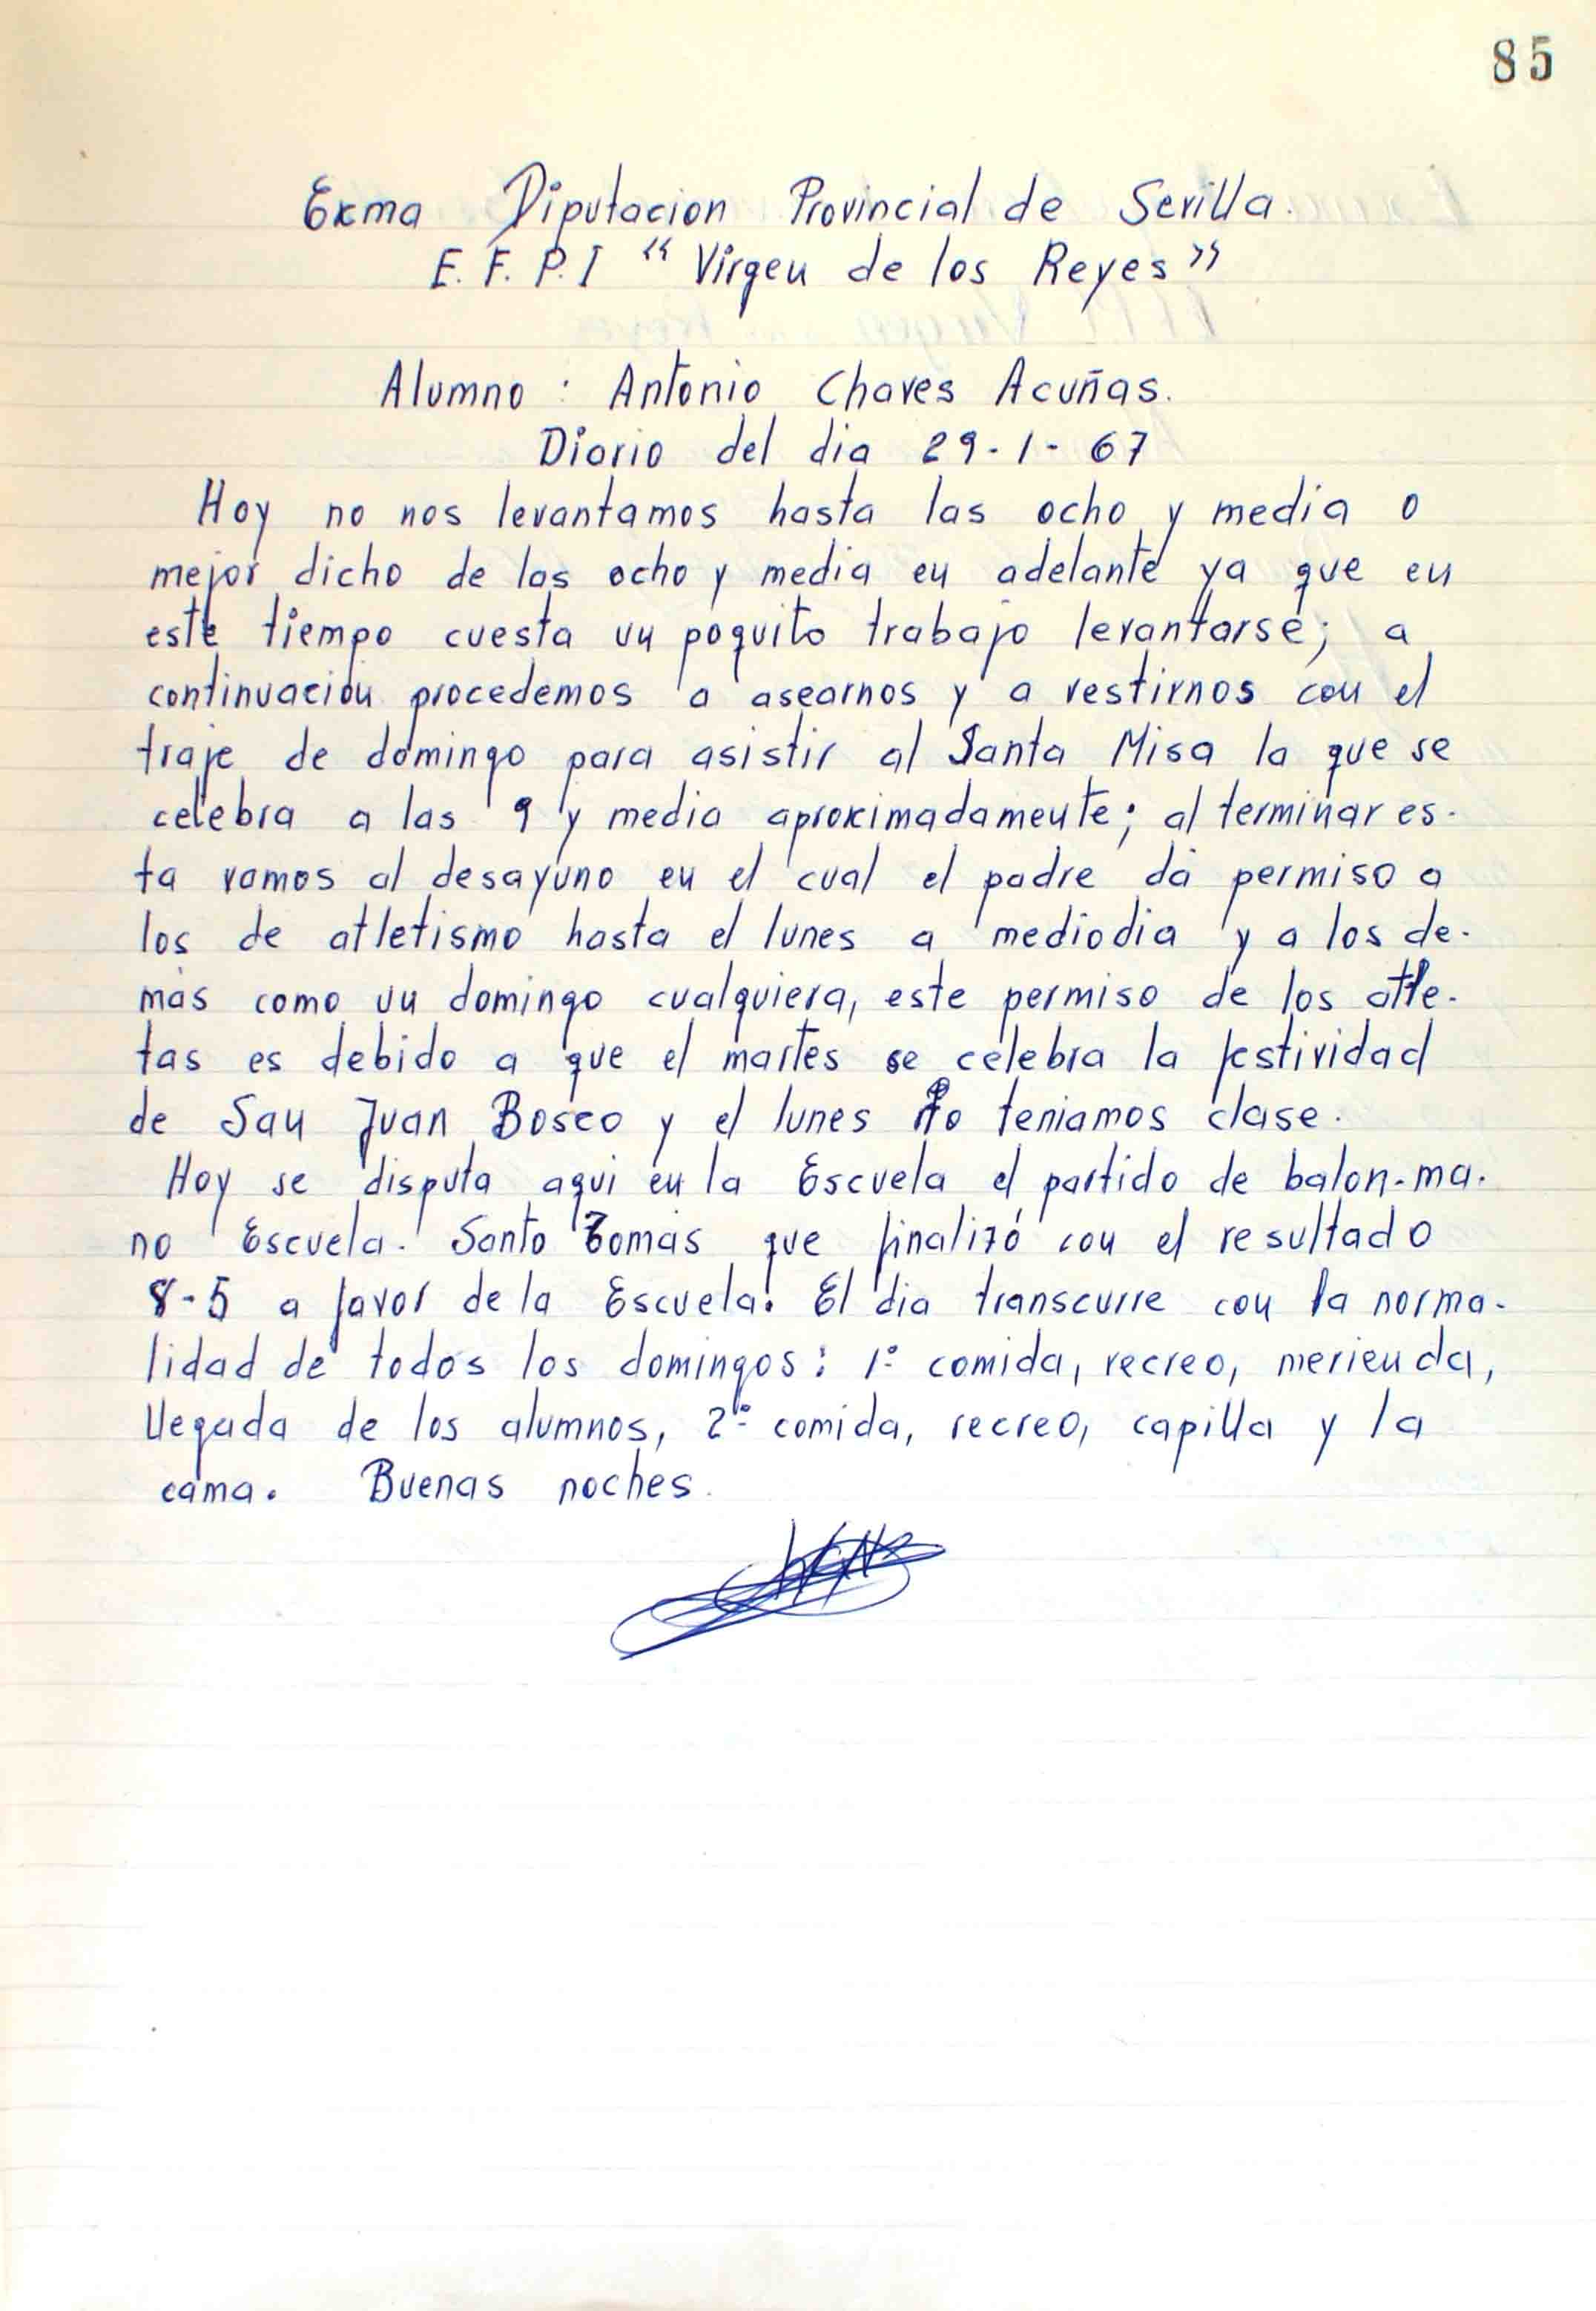 85
Exma Diputacion Provincial de Sevilla.
E. F. P. I "Virgen de los Reyes"
Alumno : Antonio Chaves Acuñas.
Diario del dia 29-1-67
Hoy no nos levantamos hasta las ocho y media o
mejor dicho de las ocho y media en adelante ya que en
este tiempo cuesta un poquito trabajo levantarse; a
continuación procedemos a asearnos y a vestirnos con el
traje de domingo para asistir al Santa Misa la que se
celebra a las 9 y media aproximadamente; al terminar es-
ta vamos al desayuno en el cual el padre dá permiso a
los de atletismo hasta el lunes a mediodia y a los de-
más como un domingo cualquiera, este permiso de los atle-
tas es debido a que el martes se celebra la festividad
de San Juan Bosco y el lunes no teniamos clase.
Hoy se disputa aqui en la Escuela el partido de balon-ma-
no Escuela - Santo Tomás que finalizó con el resultado
8-5 a favor de la Escuela. El dia transcurre con la norma-
lidad de todos los domingos: 1º comida, recreo, merienda,
llegada de los alumnos, 2º comida, recreo, capilla y la
cama. Buenas noches.